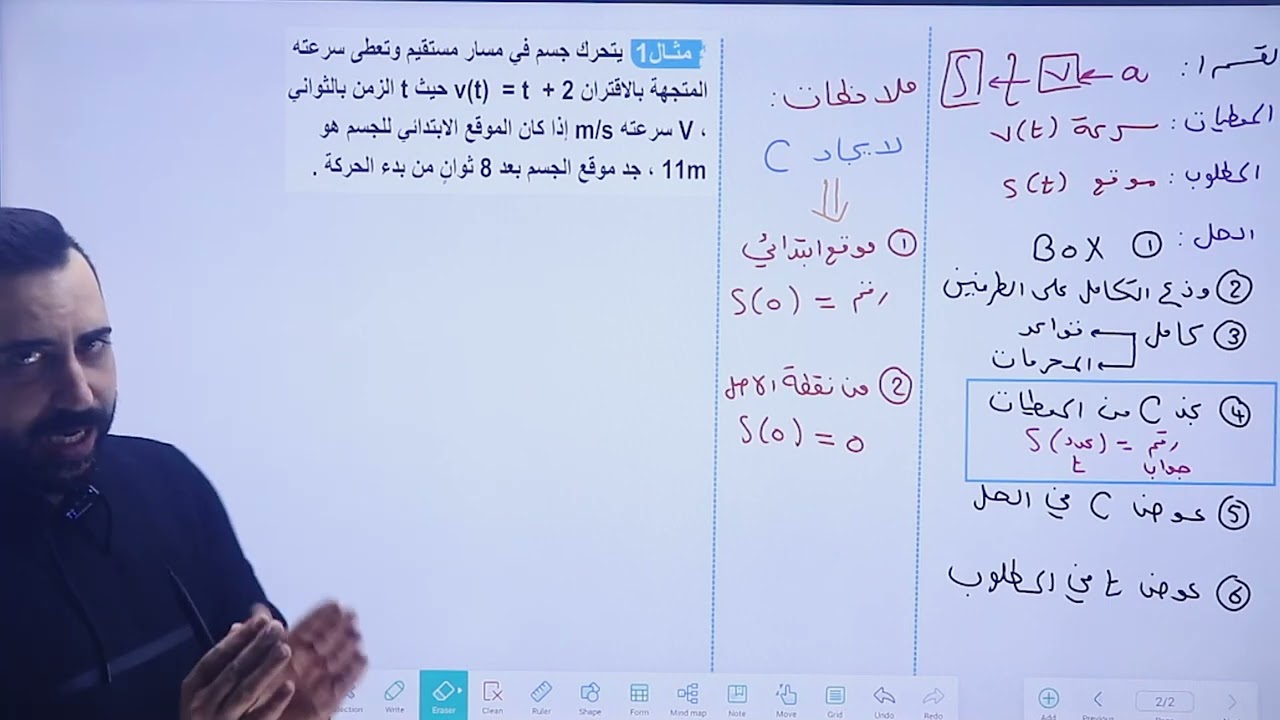 القسم 1: a → v → ∫ → S
المعطيات: سرعة v(t)
المطلوب: موقع S(t)
الحل: ① BOX
② وزع التكامل على الطرفين
③ كامل قواعد
المحرمات
④ جد C من المعطيات
S(عدد) = رقم
t جواب
⑤ عوض C في الحل
⑥ عوض t في المطلوب
ملاحظات:
لايجاد C
① موقع ابتدائي
S(0) = رقم
② من نقطة الاصل
S(0) = 0
مثال1 يتحرك جسم في مسار مستقيم وتعطى سرعته
المتجهة بالاقتران v(t) = t + 2 حيث t الزمن بالثواني
، V سرعته m/s إذا كان الموقع الابتدائي للجسم هو
11m ، جد موقع الجسم بعد 8 ثوانٍ من بدء الحركة .
Write
Eraser
Clean
Ruler
Shape
Form
Mind map
Note
Move
Grid
Undo
Redo
Add
Previous
2/2